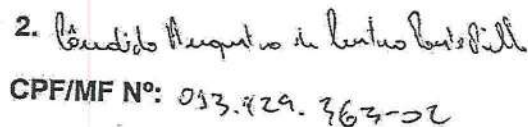 2. Cândido Augusto de Castro
CPF/MF Nº: 013.429.363-02